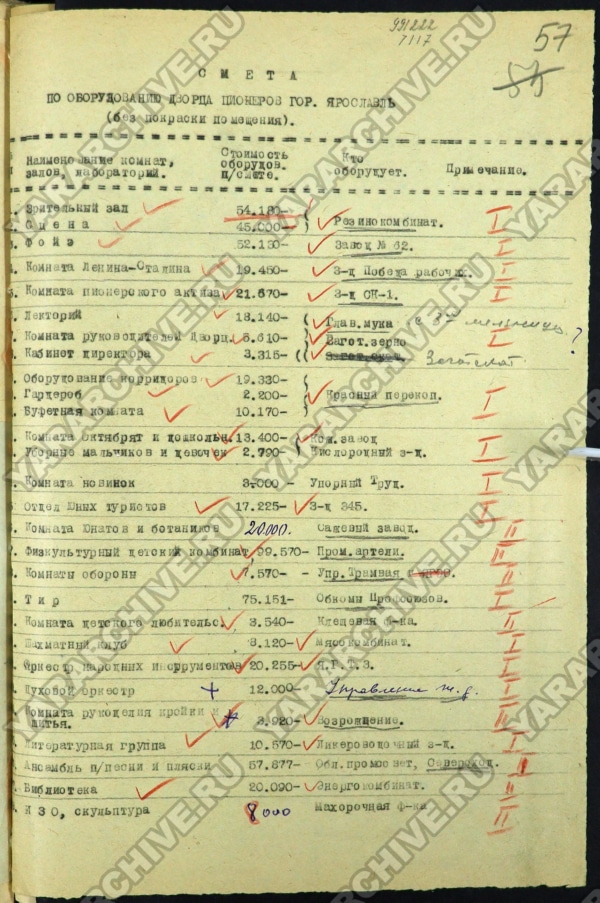 991222
7117
57
СМЕТА
ПО ОБОРУДОВАНИЮ ДВОРЦА ПИОНЕРОВ ГОР. ЯРОСЛАВЛЬ
(без покраски помещения).
Наименование комнат, залов, лабораторий. Стоимость оборудов. п/смете. Кто оборудует. Примечание.
Зрительный зал 54.180- I
Сцена 45.000- Резинокомбинат.
Фойэ 52.130- Завод № 62. I
Комната Ленина-Сталина 19.450- З-д Победа рабочих. I
Комната пионерского актива 21.670- З-д СК-1. I
Лекторий 18.140- Глав.мука с 3й мельницы
Комната руководителей Дворц. 5.610- Загот.зерно I ?
Кабинет директора 3.315- Загот.скот. Заготскот.
Оборудование корридоров 19.330-
Гардероб 2.200- Красный перекоп. I
Буфетная комната 10.170-
Комната Октябрят и дошкольн. 13.400- Кож.завод I
Уборные мальчиков и девочек 2.790- Кислородный з-д.
Комната новинок 3.000- Упорный Труд. I
Отдел Юных туристов 17.225- З-д 345. I
Комната Юнатов и ботаников 20.000. Сажевый завод. II
Физкультурный детский комбинат 99.570- Пром.артели. II
Комнаты обороны 7.570- Упр.Трамвая II
Тир 75.151- Обкомы Профсоюзов. I
Комната детского любительс. 3.540- Клеевая ф-ка. II
Шахматный клуб 8.120- Мясокомбинат. I
Оркестр народных инструментов 20.255- Я.Р.Т.З. I
Духовой оркестр + 12.000- Управление ж.д. I
Комната рукоделия кройки и шитья. 3.920- Возрождение. II
Литературная группа 10.570- Ликероводочный з-д. I
Ансамбль п/песни и пляски 57.877- Обл.промсовет, Североход. II
Библиотека 20.090- Энергокомбинат. II
ИЗО, скульптура 8000 Махорочная ф-ка II
YARARCHIVE.RU